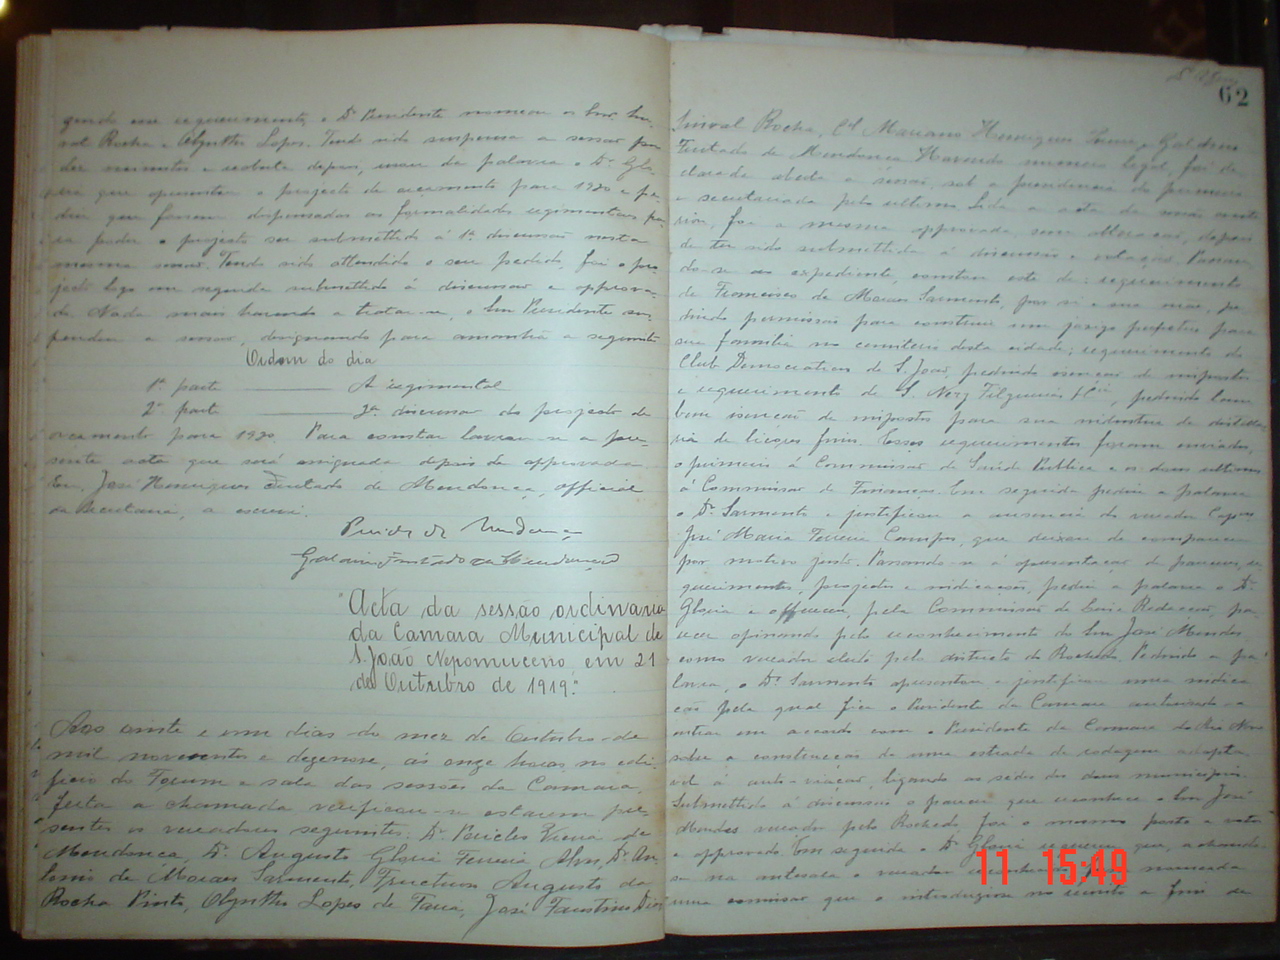 gundo esse requerimento, o Dr. Presidente nomeou os Snrs. Sin-
val Rocha e Olyntho Lopes. Tendo sido suspensa a sessão por
dez minutos e reaberta depois, usou da palavra o Dr. Glo-
ria que apresentou o projecto de orçamento para 1920 e pe-
diu que fossem dispensadas as formalidades regimentaes pa-
ra poder o projecto ser submettido á 1ª discussão nesta
mesma sessão. Tendo sido attendido o seu pedido, foi o pro-
jecto logo em seguida submettido á discussão e approva-
do. Nada mais havendo a tratar-se, o Snr. Presidente sus-
pendeu a sessão, designando para amanhã a seguinte
Ordem do dia
1ª parte A regimental
2ª parte 2ª discussão do projecto de
orçamento para 1920. Para constar lavrou-se a pre-
sente acta que será assignada depois de approvada.
Eu, José Henriques Furtado de Mendonça, official
da Secretaria, a escrevi.
Galdino Furtado de Mendonça
"Acta da sessão ordinaria
da Camara Municipal de
S. João Nepomuceno em 21
de Outubro de 1919."
Aos vinte e um dias do mez de Outubro de
mil novecentos e dezenove, ás onze horas no edi-
ficio do Forum e sala das sessões da Camara,
feita a chamada verificou-se estarem pre-
sentes os vereadores seguintes: Dr. Pericles Vieira de
Mendonça, Dr. Augusto Gloria Ferreira Alves, Dr. An-
tonio de Moraes Sarmento, Fructuoso Augusto da
Rocha Pinto, Olyntho Lopes de Faria, José Faustino Dias,
62
Sinval Rocha, Cel Mariano Henriques e Galdino
Furtado de Mendonça. Havendo numero legal, foi de-
clarada aberta a sessão, sob a presidencia do primeiro
e secretariada pelo ultimo. Lida a acta da sessão ante-
rior, foi a mesma approvada, sem alteração, depois
de ter sido submettida á discussão e votação. Passan-
do-se ao expediente, constou este de: requerimento
de Francisco de Moraes Sarmento, por si e sua mãe, pe-
dindo permissão para construir um jazigo perpetuo para
sua familia no cemiterio desta cidade; requerimento do
Club Democraticos de S. João, pedindo isenção de impostos
e requerimento de S. Nery Filgueiras, pedindo tam-
bem isenção de impostos para sua industria de distilla-
ria de licores finos. Esses requerimentos foram enviados,
o primeiro á Commissão de Saúde Publica e os dous ultimos
á Commissão de Finanças. Em seguida pediu a palavra
o Dr. Sarmento e justificou a ausencia do vereador Capm
José Maria Ferreira Campos, que deixou de comparecer
por motivo justo. Passando-se á apresentação de pareceres, re-
querimentos, projectos e indicações, pediu a palavra o Dr.
Gloria e offereceu, pela Commissão de Leis e Redacção, pa-
recer opinando pelo reconhecimento do Snr. José Mendes
como vereador eleito pelo districto do Rochedo. Pedindo a pa-
lavra, o Dr. Sarmento apresentou e justificou uma indica-
ção pela qual fica o Presidente da Camara autorisado a
entrar em accordo com o Presidente da Camara do Rio Novo
sobre a construcção de uma estrada de rodagem adapta-
vel á auto-viação, ligando as sédes dos dous municipios.
Submettido á discussão o parecer que reconhece o Snr. José
Mendes vereador pelo Rochedo foi o mesmo posto a votos
e approvado. Em seguida o Dr. Gloria requereu que, achando-
se na antesala o vereador reconhecido, fosse nomeada
uma commissão que o introduzisse no recinto a fim de
11 15:49